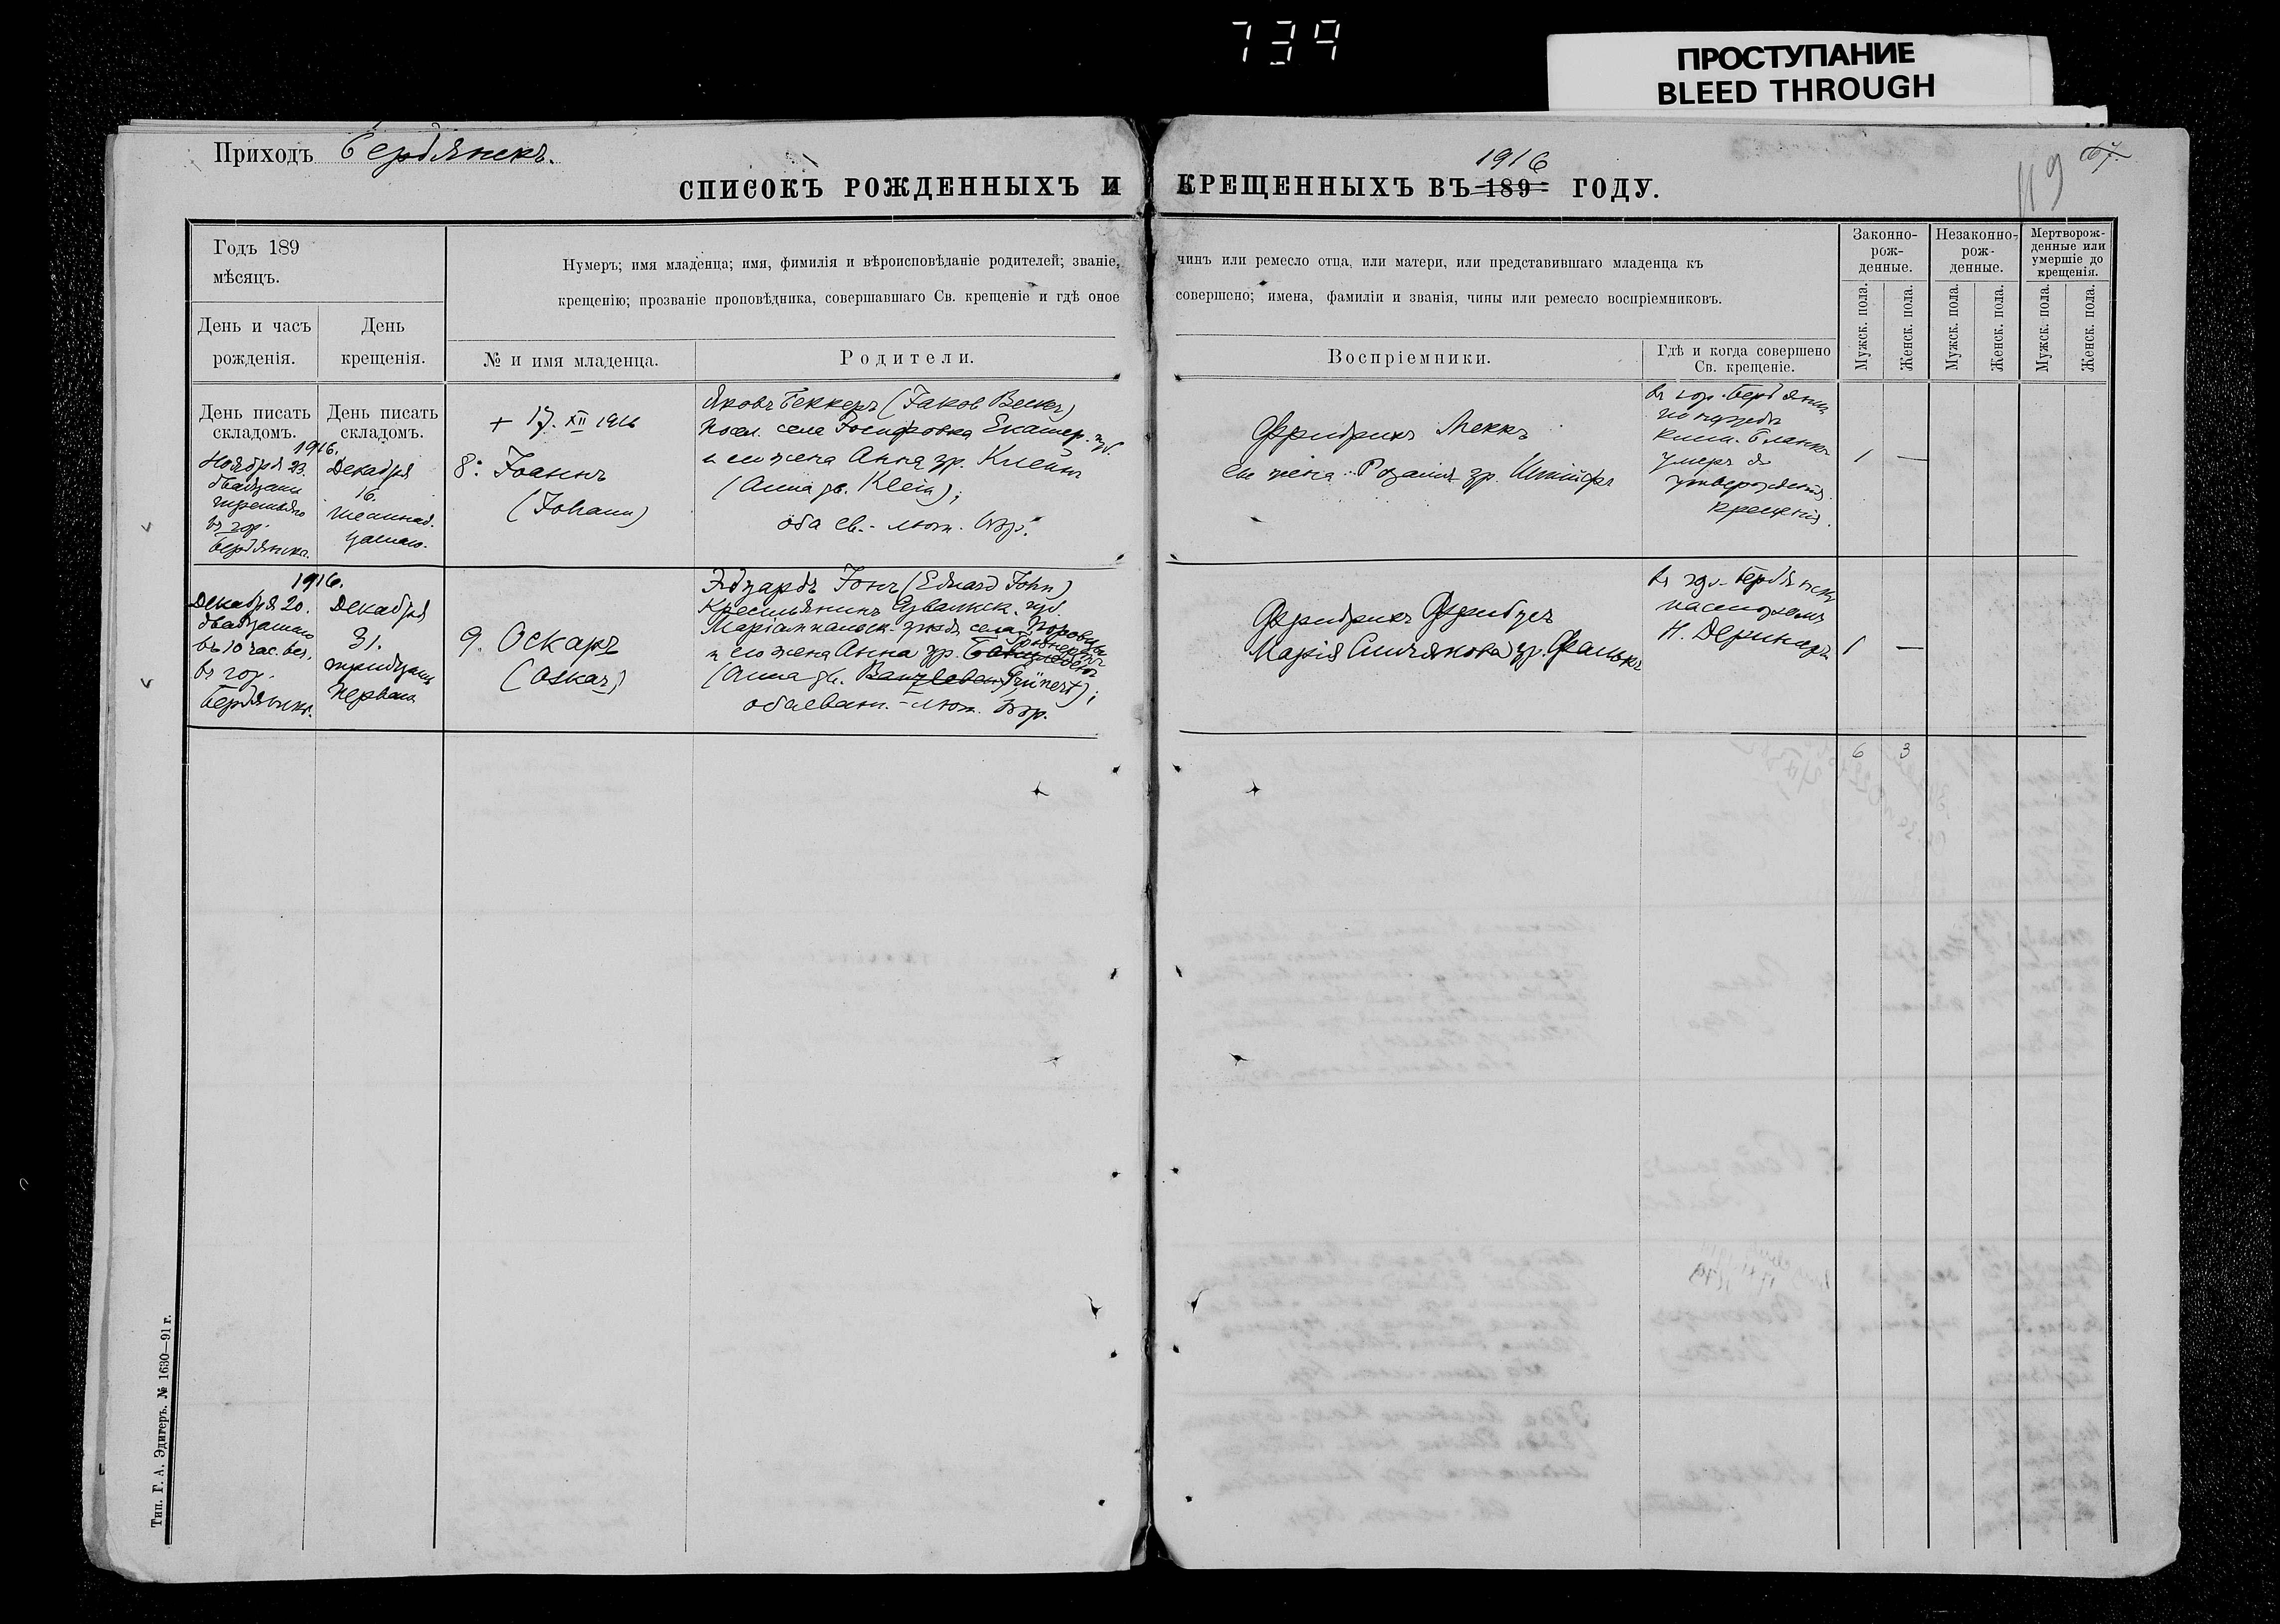 739
ПРОСТУПАНИЕ
BLEED THROUGH
Приходъ Бердянскъ.
119 67.
1916
СПИСОКЪ РОЖДЕННЫХЪ И КРЕЩЕННЫХЪ ВЪ 189 ГОДУ.
Годъ 189
мѣсяцъ.
День и часъ
рожденія.
День
крещенія.
Нумеръ; имя младенца; имя, фимилія и вѣроисповѣданіе родителей; званіе, чинъ или ремесло отца, или матери, или представившаго младенца къ
крещенію; прозваніе проповѣдника, совершавшаго Св. крещеніе и гдѣ оное совершено; имена, фамиліи и званія, чины или ремесло воспріемниковъ.
№ и имя младенца.
Родители.
Воспріемники.
Гдѣ и когда совершено
Св. крещеніе.
Законно-
рож-
денные.
Незаконно-
рож-
денные.
Мертворож-
денные или
умершіе до
крещенія.
Мужск. пола.
Женск. пола.
Мужск. пола.
Женск. пола.
Мужск. пола.
Женск. пола.
День писать
складомъ.
День писать
складомъ.
1916.
Ноября 23.
двадцать
третьяго
въ гор.
Бердянскѣ.
Декабря
16.
шестнад.
цатаго.
+ 17. XII 1916
8. Іоаннъ
(Johann)
Яковъ Беккеръ (Jakob Becker)
посел. села Екатер. губ.
и его жена Анна ур. Клейнъ
(Anna gb. Klein);
оба ев.-лют. вѣр.
Фридрихъ Меккъ
его жена Розалія ур.
въ гор. Бердянскѣ
по нуждѣ
умеръ до
утвержденія
крещенія.
1 —
1916.
Декабря 20.
двадцатаго
въ 10 час. веч.
въ гор.
Бердянскѣ.
Декабря
31.
тридцать
перваго
9. Оскаръ
(Oskar)
Эдуардъ Іонъ (Eduard John)
Крестьянинъ Сувалкск. губ.
Маріампольск. уѣзда села
и его жена Анна ур.
(Anna gb. Grünert);
оба еван.-лют. вѣр.
Фридрихъ
Марія ур. Фалькъ
въ гор. Бердянскѣ
пасторомъ
1 —
6 3
Тип. Г. А. Эдигеръ. № 1630—91 г.